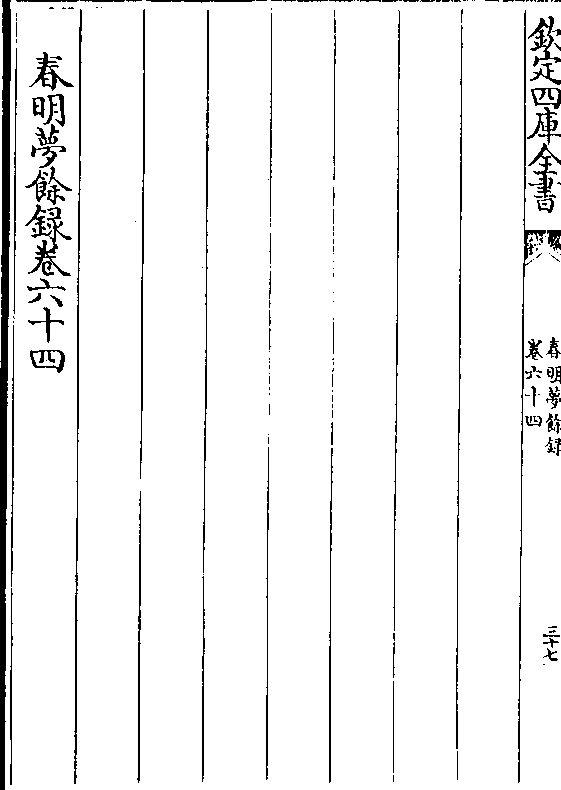 欽定四庫全書
春明夢餘録
卷六十四
三十七
春明夢餘録卷六十四